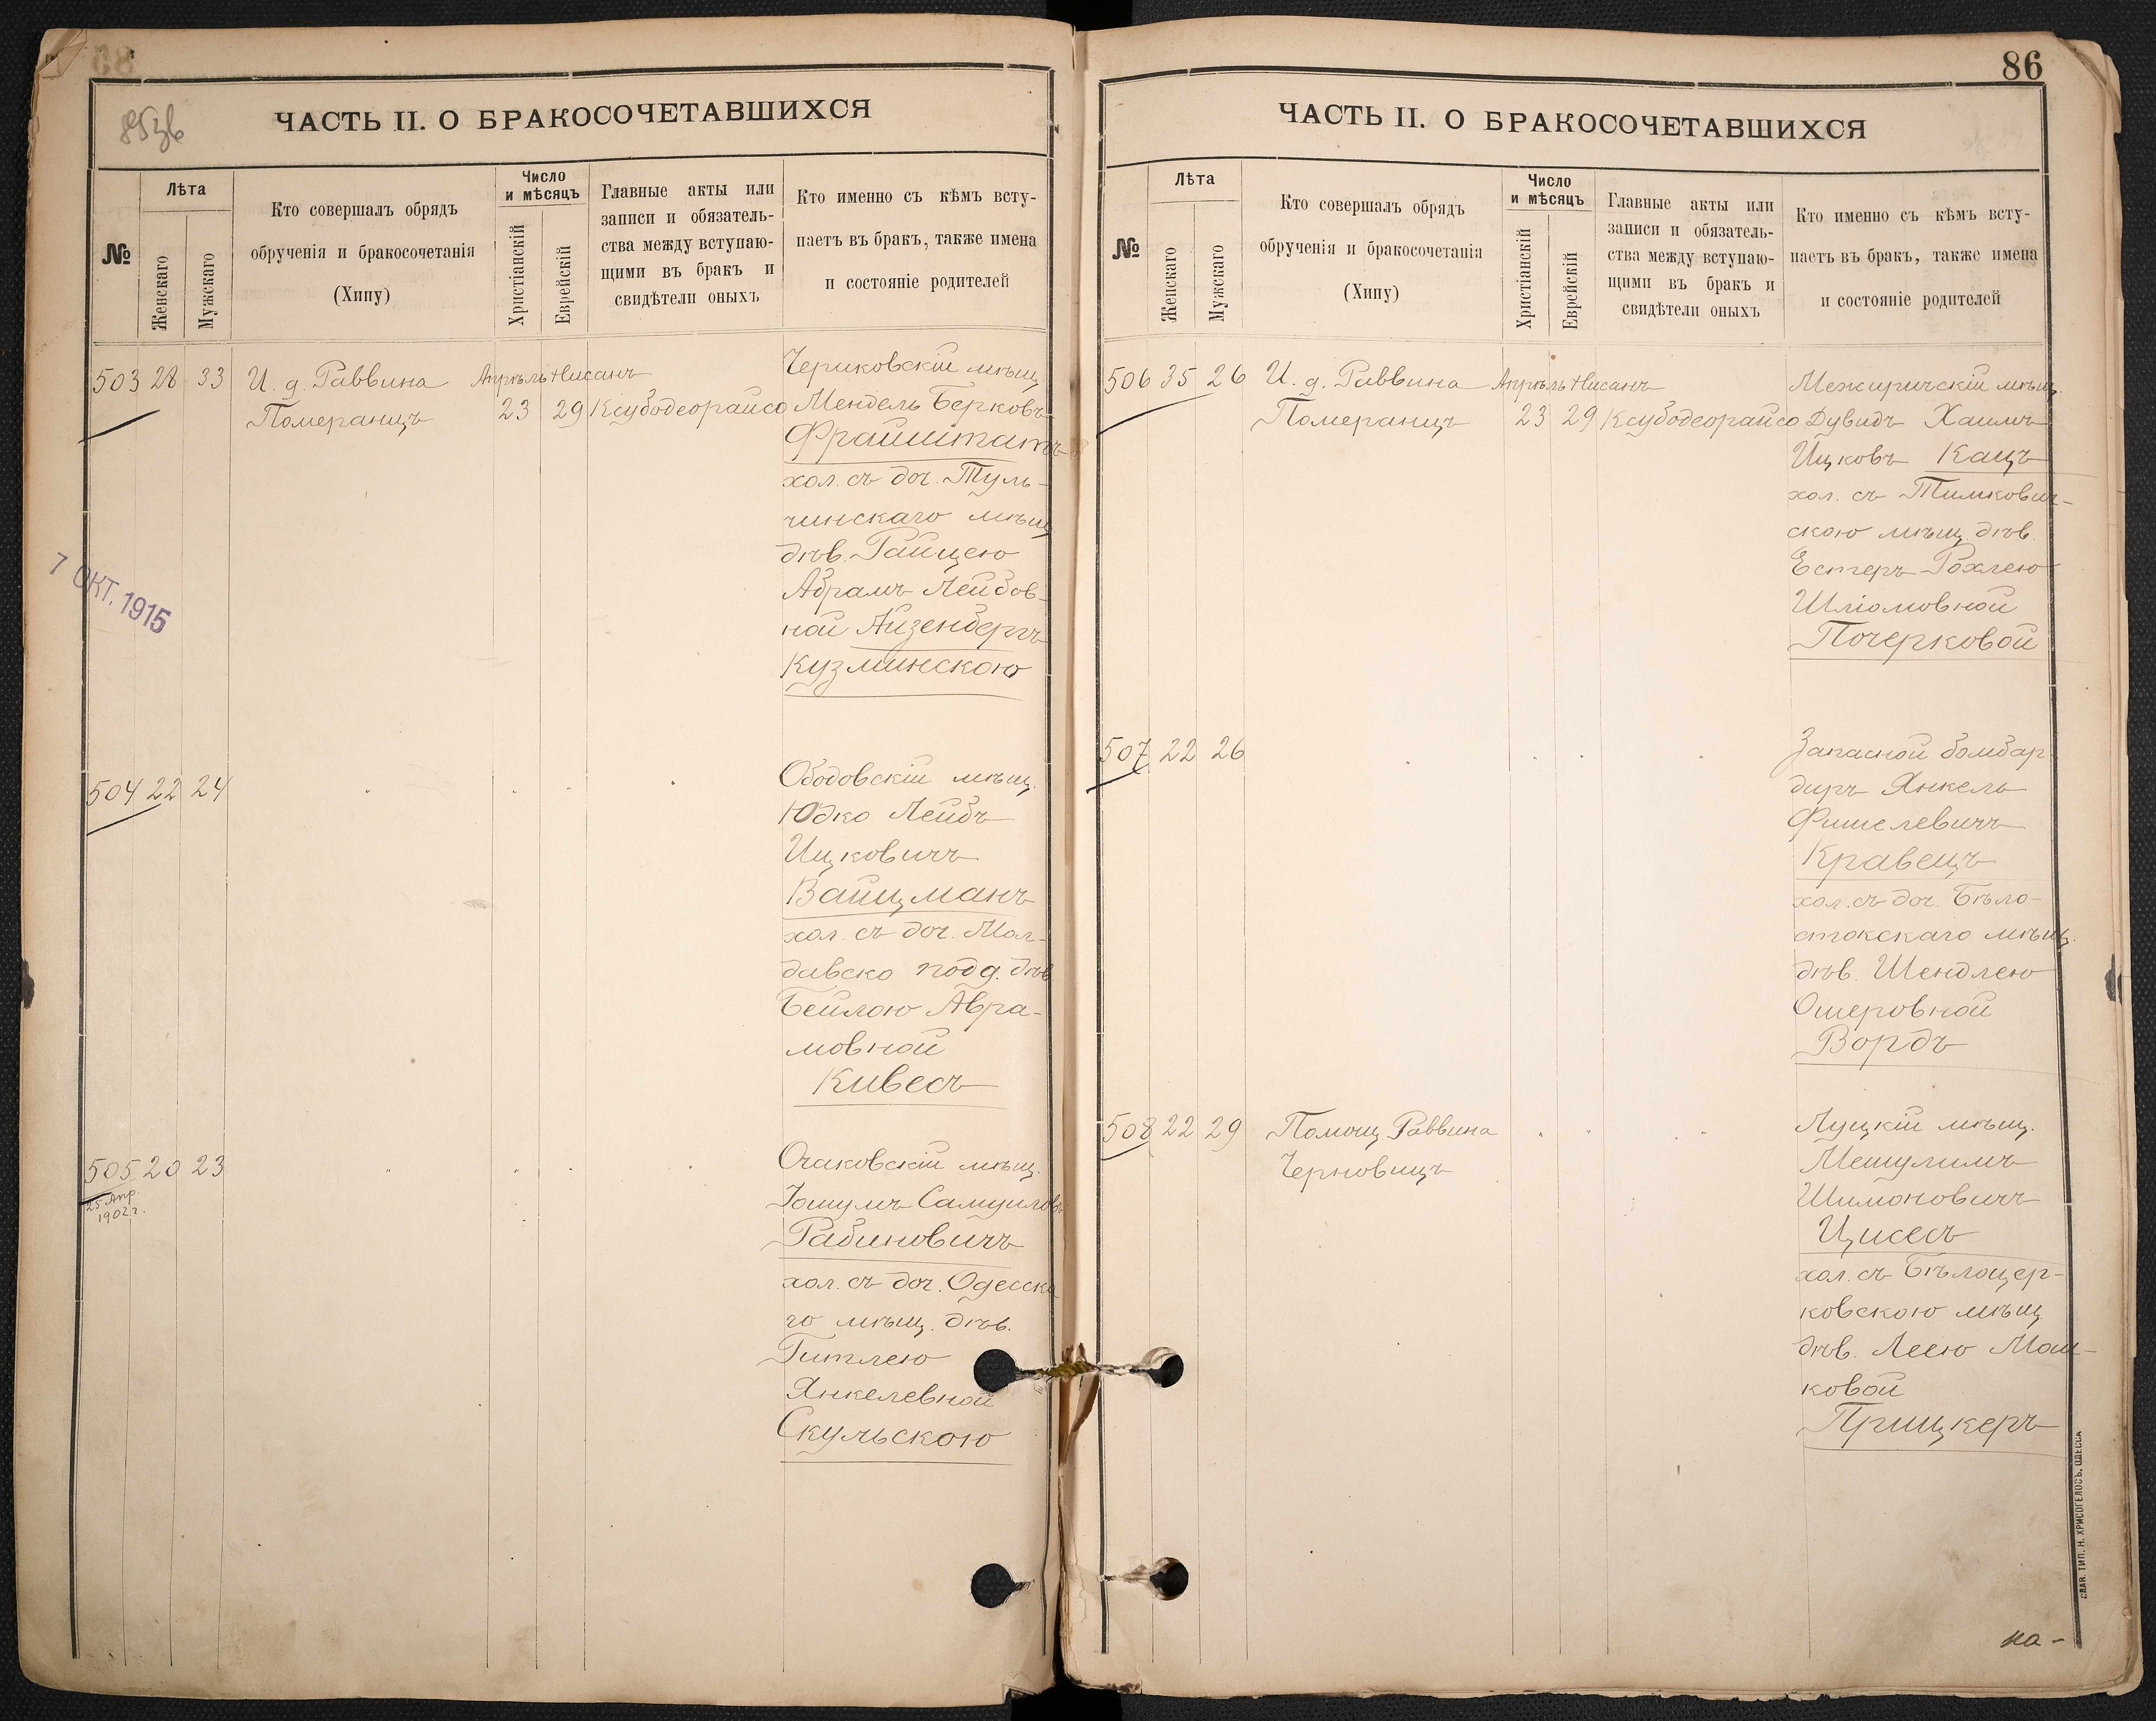 85зв
ЧАСТЬ II. О БРАКОСОЧЕТАВШИХСЯ
№
Лѣта
Женскаго
Мужскаго
Кто совершалъ обрядъ
обрученія и бракосочетанія
(Хипу)
Число
и мѣсяцъ
Христіанскій
Еврейскій
Главные акты или
записи и обязатель-
ства между вступаю-
щими въ бракъ и
свидѣтели оныхъ
Кто именно съ кѣмъ всту-
паетъ въ бракъ, также имена
и состояніе родителей
503 28 33 И. д. Раввина Апрѣль Нисанъ
Померанцъ 23 29 Ксубодеорайсо
Чериковскій мѣщ.
Мендель Берковъ
Фрайштатъ
хол. съ доч. Туль-
чинскаго мѣщ
дѣв. Гайцею
Абрамъ Лейбов-
ной Айзенбергъ
Кузминскою
7 ОКТ. 1915
504 22 24 " " " "
Ободовскій мѣщ.
Юдко Лейбъ
Ицковичъ
Вайцманъ
хол. съ доч. Мол-
давско подд. дѣв
Бейлою Авра-
мовной
Кивесъ
505 20 23 " " " "
25 Апр.
1902 г.
Очаковскій мѣщ.
Іошумъ Самуиловъ
Рабиновичъ
хол. съ доч. Одесска
го мѣщ. дѣв.
Гитлею
Янкелевной
Скульскою
86
ЧАСТЬ II. О БРАКОСОЧЕТАВШИХСЯ
№
Лѣта
Женскаго
Мужскаго
Кто совершалъ обрядъ
обрученія и бракосочетанія
(Хипу)
Число
и мѣсяцъ
Христіанскій
Еврейскій
Главные акты или
записи и обязатель-
ства между вступаю-
щими въ бракъ и
свидѣтели оныхъ
Кто именно съ кѣмъ всту-
паетъ въ бракъ, также имена
и состояніе родителей
506 35 26 И. д. Раввина Апрѣль Нисанъ
Померанцъ 23 29 Ксубодеорайсо
Межиричскій мѣщ.
Дувидъ Хаимъ
Ицковъ Кацъ
хол. съ Тимкович-
скою мѣщ. дѣв.
Естеръ Рохлею
Шліомовной
Почерковой
507 22 26 " " " "
Запасной бомбар
диръ Янкель
Фишелевичъ
Кравецъ
хол. съ доч. Бѣло-
стокскаго мѣщ.
дѣв. Шендлею
Ошеровной
Вордъ
508 22 29 Помощ. Раввина " " "
Черновицъ
Луцкій мѣщ.
Мешулимъ
Шимоновичъ
Цисесъ
хол. съ Бѣлоцер-
ковскою мѣщ
дѣв. Леею Мош-
ковой
Прицкеръ
СЛАВ. ТИП. Н. ХРИСОГЕЛОСЪ. ОДЕССА
на-